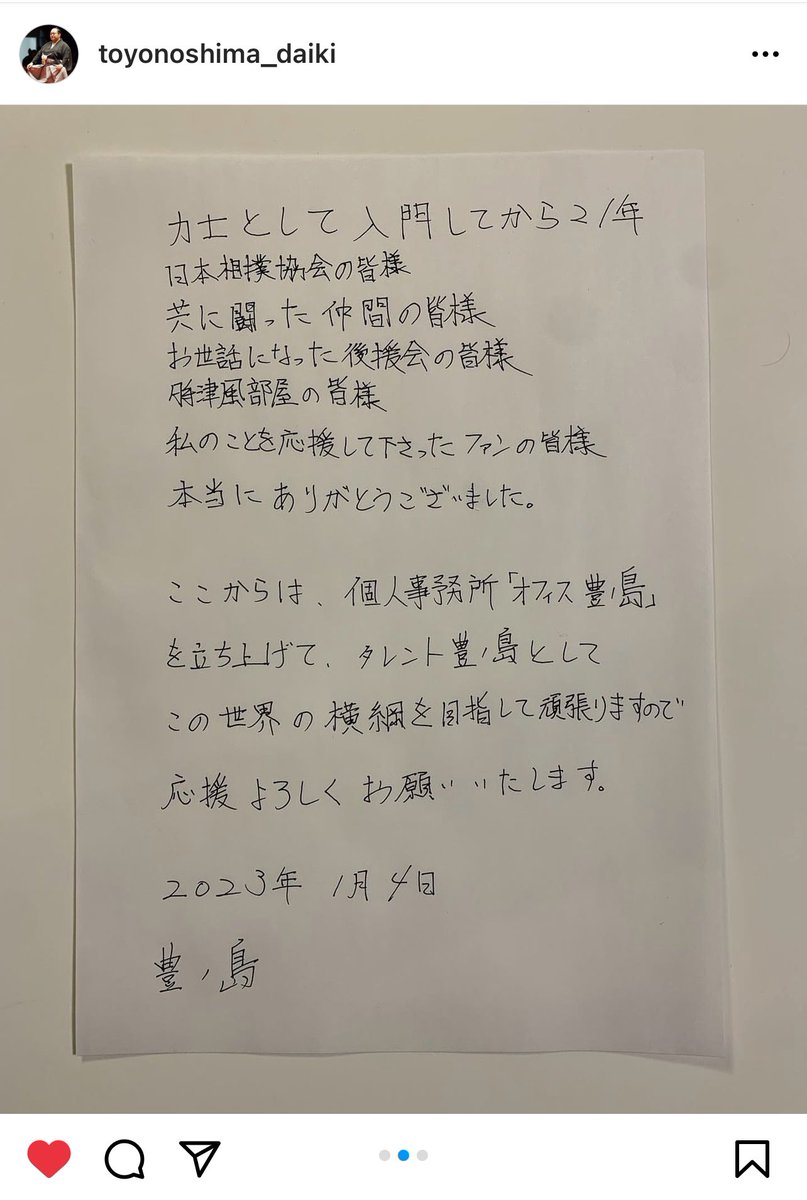 toyonoshima_daiki
力士として入門してから21年
日本相撲協会の皆様
共に闘った仲間の皆様
お世話になった後援会の皆様
時津風部屋の皆様
私のことを応援して下さったファンの皆様
本当にありがとうございました。
ここからは、個人事務所「オフィス豊ノ島」
を立ち上げて、タレント豊ノ島として
この世界の横綱を目指して頑張りますので
応援よろしくお願いいたします。
2023年 1月4日
豊ノ島